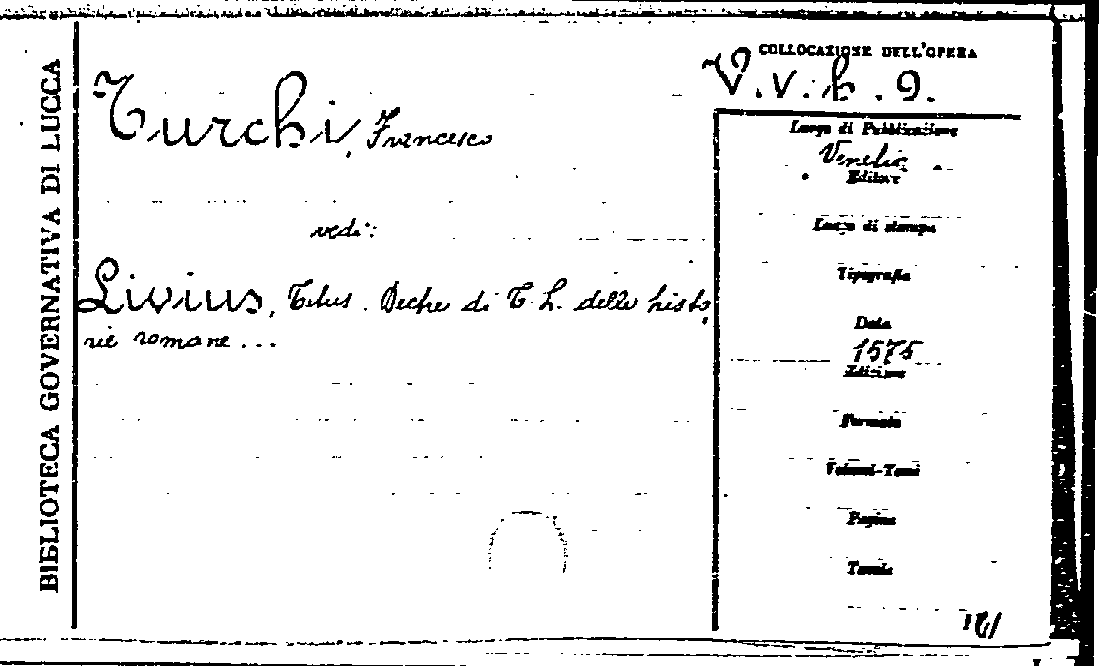 BIBLIOTECA GOVERNATIVA DI LUCCA
COLLOCAZIONE DELL'OPERA
V.V.h.9.
Turchi, Francesco
vedi:
Livius, Titus. Deche di T. L. delle histo
rie romane...
Luogo di Pubblicazione
Venetia
Editore
Luogo di stampa
Tipografia
Data
1575
Edizione
Formato
Volumi-Tomi
Pagine
Tavole